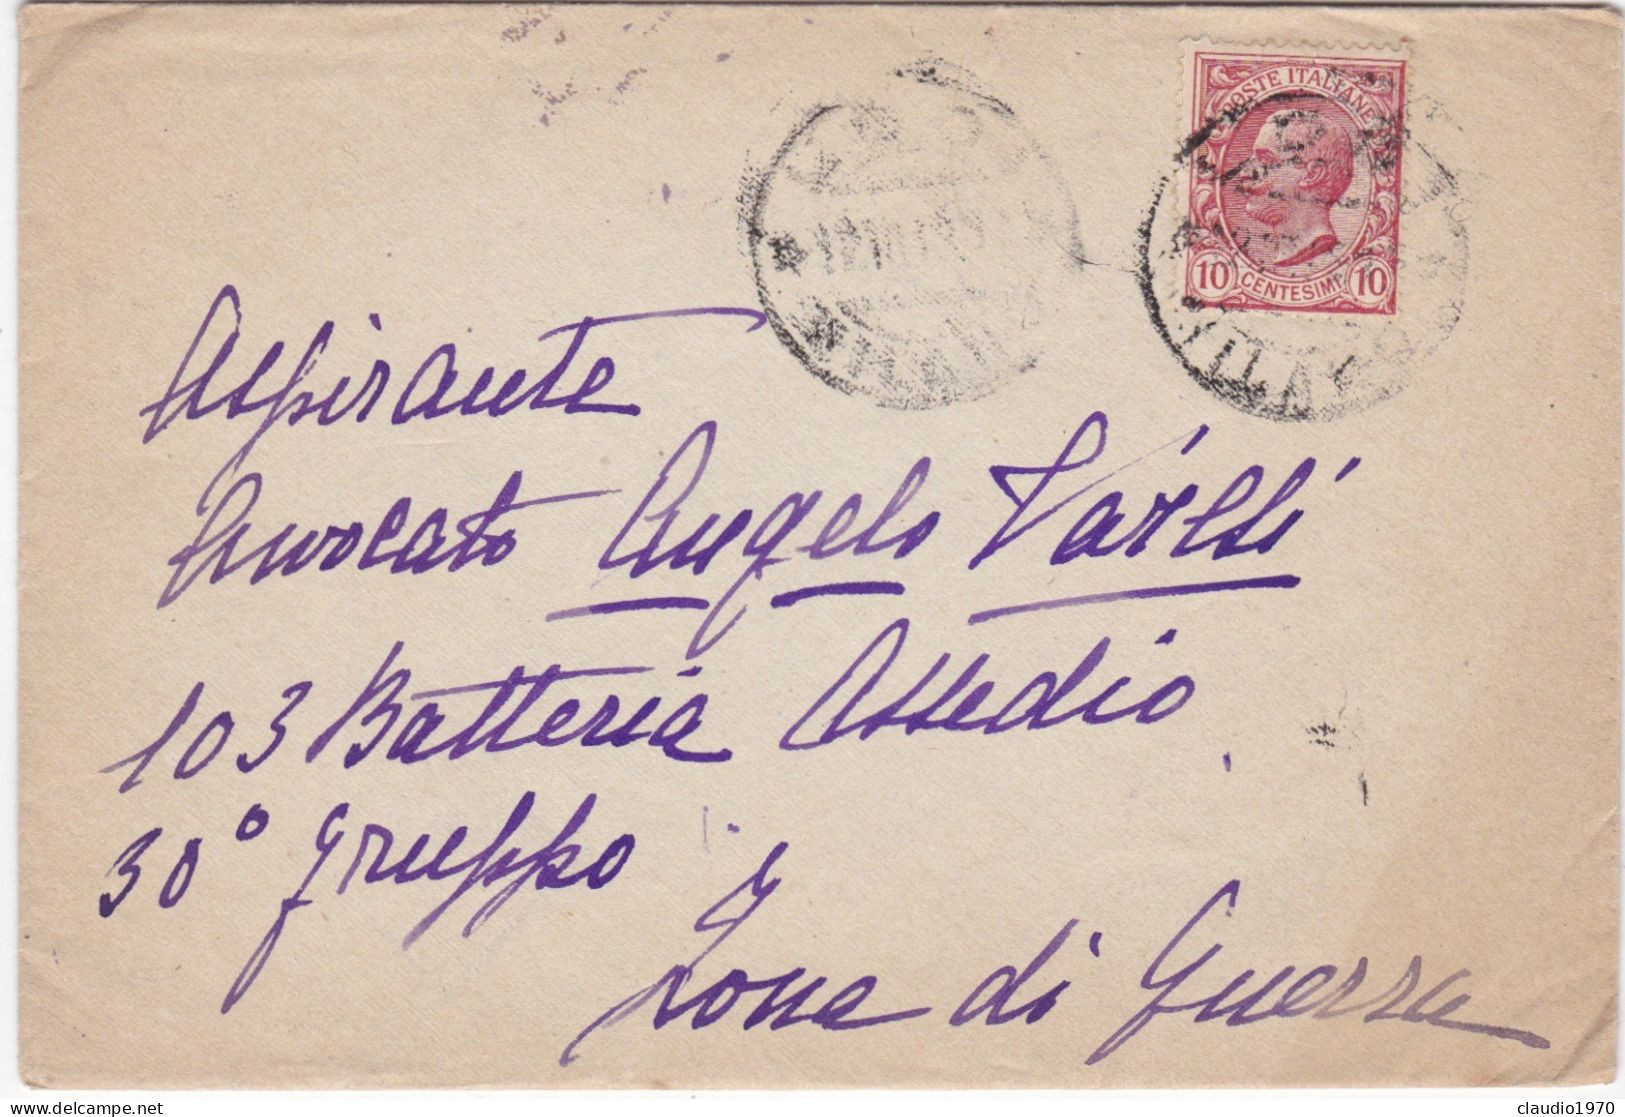 POSTE ITALIANE
10 CENTESIMI 10
MILANO
Aspirante
Avvocato Angelo Varesi
103 Batteria Assedio
30° gruppo
Zona di Guerra
delcampe.net
claudio1970